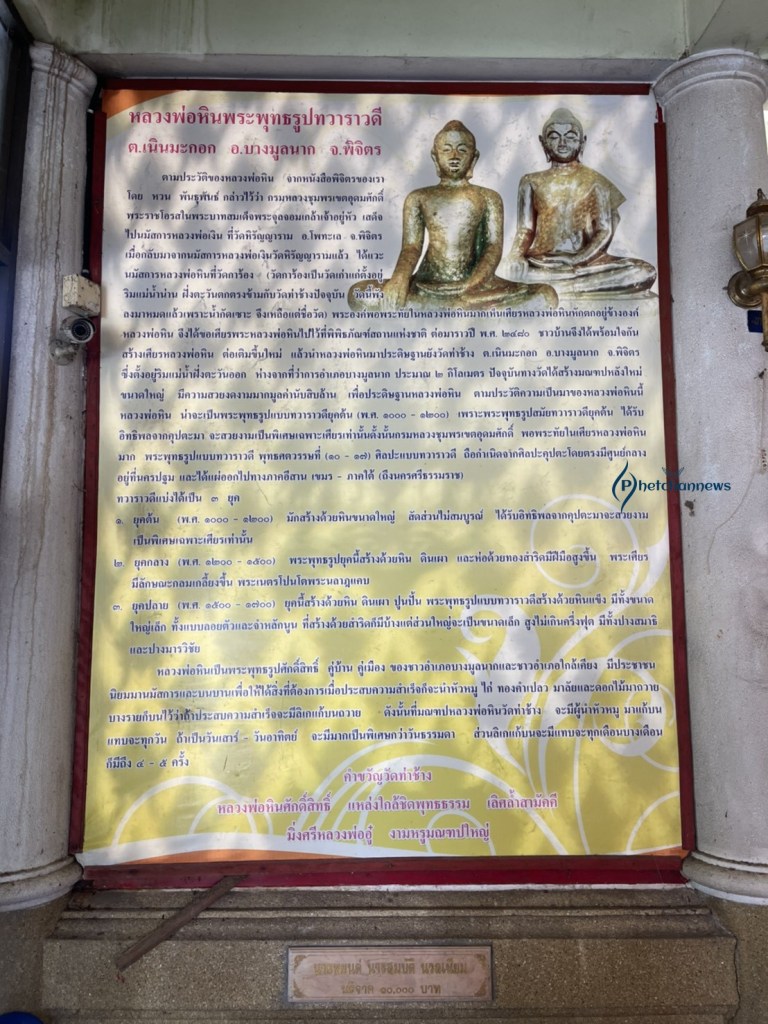 หลวงพ่อหินพระพุทธรูปทวาราวดี
ต.เนินมะกอก อ.บางมูลนาก จ.พิจิตร
ตามประวัติของหลวงพ่อหิน จากหนังสือพิจิตรของเรา
โดย หวน พันธุพันธ์ กล่าวไว้ว่า กรมหลวงชุมพรเขตอุดมศักดิ์
พระราชโอรสในพระบาทสมเด็จพระจุลจอมเกล้าเจ้าอยู่หัว เสด็จ
ไปนมัสการหลวงพ่อเงิน ที่วัดหิรัญญาราม อ.โพทะเล จ.พิจิตร
เมื่อกลับมาจากนมัสการหลวงพ่อเงินวัดหิรัญญารามแล้ว ได้แวะ
นมัสการหลวงพ่อหินที่วัดการ้อง (วัดการ้องเป็นวัดเก่าแก่ตั้งอยู่
ริมแม่น้ำน่าน ฝั่งตะวันตกตรงข้ามกับวัดท่าช้างปัจจุบัน วัดนี้พัง
ลงมาหมดแล้วเพราะน้ำกัดเซาะ จึงเหลือแต่ชื่อวัด) พระองค์พอพระทัยในหลวงพ่อหินมากเห็นเศียรหลวงพ่อหินหักตกอยู่ข้างองค์
หลวงพ่อหิน จึงได้ขอเศียรพระหลวงพ่อหินไปไว้ที่พิพิธภัณฑ์สถานแห่งชาติ ต่อมาราวปี พ.ศ. ๒๔๘๐ ชาวบ้านจึงได้พร้อมใจกัน
สร้างเศียรหลวงพ่อหิน ต่อเติมขึ้นใหม่ แล้วนำหลวงพ่อหินมาประดิษฐานยังวัดท่าช้าง ต.เนินมะกอก อ.บางมูลนาก จ.พิจิตร
ซึ่งตั้งอยู่ริมแม่น้ำฝั่งตะวันออก ห่างจากที่ว่าการอำเภอบางมูลนาก ประมาณ ๒ กิโลเมตร ปัจจุบันทางวัดได้สร้างมณฑปหลังใหม่
ขนาดใหญ่ มีความสวยงดงามมากมูลค่านับสิบล้าน เพื่อประดิษฐานหลวงพ่อหิน ตามประวัติความเป็นมาของหลวงพ่อหินนี้
หลวงพ่อหิน น่าจะเป็นพระพุทธรูปแบบทวาราวดียุคต้น (พ.ศ. ๑๐๐๐ - ๑๒๐๐) เพราะพระพุทธรูปสมัยทวาราวดียุคต้น ได้รับ
อิทธิพลจากคุปตะมา จะสวยงามเป็นพิเศษเฉพาะเศียรเท่านั้นดั้งนั้นกรมหลวงชุมพรเขตอุดมศักดิ์ พอพระทัยในเศียรหลวงพ่อหิน
มาก พระพุทธรูปแบบทวาราวดี พุทธศตวรรษที่ (๑๐ - ๑๗) ศิลปะแบบทวาราวดี ถือกำเนิดจากศิลปะคุปตะโดยตรงมีศูนย์กลาง
อยู่ที่นครปฐม และได้แผ่ออกไปทางภาคอีสาน เขมร - ภาคใต้ (ถึงนครศรีธรรมราช)
ทวาราวดีแบ่งได้เป็น ๓ ยุค
๑. ยุคต้น (พ.ศ. ๑๐๐๐ - ๑๒๐๐) มักสร้างด้วยหินขนาดใหญ่ สัดส่วนไม่สมบูรณ์ ได้รับอิทธิพลจากคุปตะมาจะสวยงาม
เป็นพิเศษเฉพาะเศียรเท่านั้น
๒. ยุคกลาง (พ.ศ. ๑๒๐๐ - ๑๕๐๐) พระพุทธรูปยุคนี้สร้างด้วยหิน ดินเผา และห่อด้วยทองสำริดมีฝีมือสูงขึ้น พระเศียร
มีลักษณะกลมเกลี้ยงขึ้น พระเนตรโปนโตพระนลาฏแคบ
๓. ยุคปลาย (พ.ศ. ๑๕๐๐ - ๑๗๐๐) ยุคนี้สร้างด้วยหิน ดินเผา ปูนปั้น พระพุทธรูปแบบทวาราวดีสร้างด้วยหินแข็ง มีทั้งขนาด
ใหญ่เล็ก ทั้งแบบลอยตัวและจำหลักนูน ที่สร้างด้วยสำริดก็มีบ้างแต่ส่วนใหญ่จะเป็นขนาดเล็ก สูงไม่เกินครึ่งฟุต มีทั้งปางสมาธิ
และปางมารวิชัย
หลวงพ่อหินเป็นพระพุทธรูปศักดิ์สิทธิ์ คู่บ้าน คู่เมือง ของชาวอำเภอบางมูลนากและชาวอำเภอใกล้เคียง มีประชาชน
นิยมมานมัสการและบนบานเพื่อให้ได้สิ่งที่ต้องการเมื่อประสบความสำเร็จก็จะนำหัวหมู ไก่ ทองคำเปลว มาลัยและดอกไม้มาถวาย
บางรายก็บนไว้ว่าถ้าประสบความสำเร็จจะมีลิเกแก้บนถวาย ดังนั้นที่มณฑปหลวงพ่อหินวัดท่าช้าง จะมีผู้นำหัวหมู มาแก้บน
แทบจะทุกวัน ถ้าเป็นวันเสาร์ - วันอาทิตย์ จะมีมากเป็นพิเศษกว่าวันธรรมดา ส่วนลิเกแก้บนจะมีแทบจะทุกเดือนบางเดือน
ก็มีถึง ๔ - ๕ ครั้ง
คำขวัญวัดท่าช้าง
หลวงพ่อหินศักดิ์สิทธิ์ แหล่งใกล้ชิดพุทธธรรม เลิศล้ำสามัคคี
มิ่งศรีหลวงพ่ออู๋ งามหรูมณฑปใหญ่
Phetchannews
บริจาค ๑๐,๐๐๐ บาท